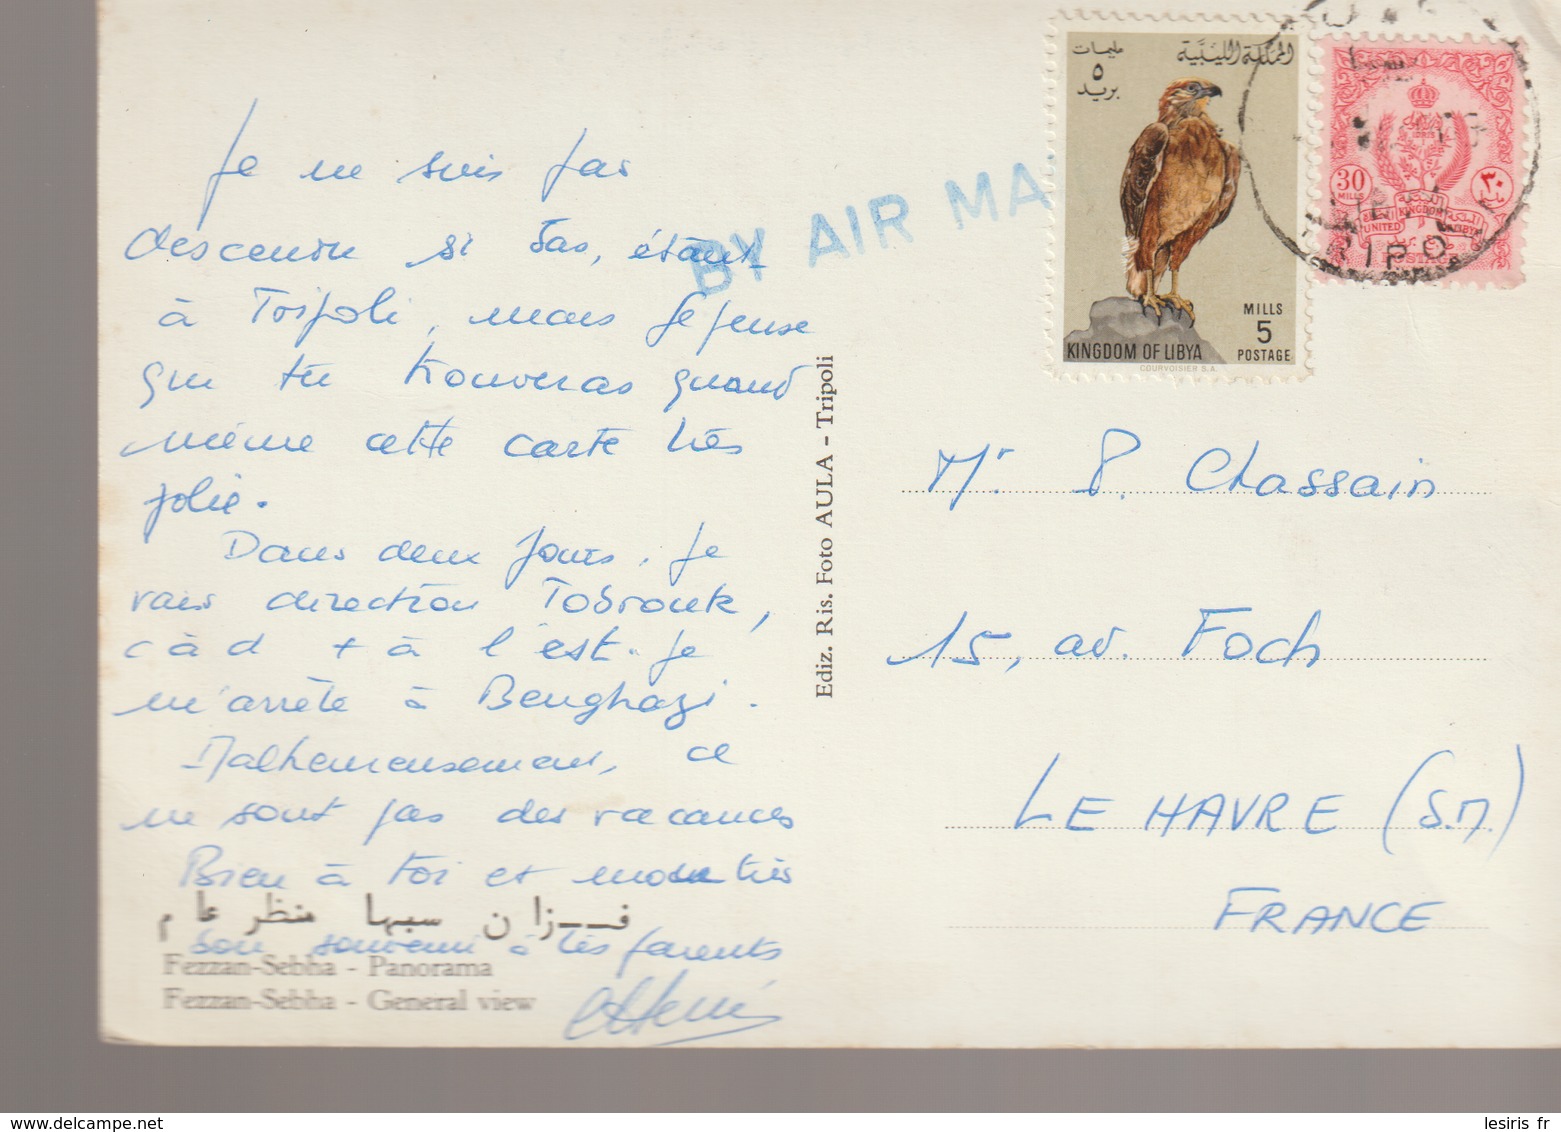 Je ne suis pas
descendu si bas, étant
à Tripoli, mais je pense
que tu trouveras quand
même cette carte très
jolie.
Dans deux jours, je
vais direction Tobrouk,
c à d + à l'est. je
m'arrête à Benghazi.
Malheureusement, ce
ne sont pas des vacances
Bien à toi et mon très
bon souvenir à tes parents
فــزان سبها منظر عام
Fezzan-Sebha - Panorama
Fezzan-Sebha - General view
BY AIR MA
Ediz. Ris. Foto AULA - Tripoli
المملكة الليبية
مليمات
٥
بريد
MILLS
5
POSTAGE
KINGDOM OF LIBYA
COURVOISIER S.A.
30
MILLS
٣٠
UNITED KINGDOM LIBYA
POSTAGE
TRIPO
Mr P. Chassain
15, av. Foch
LE HAVRE (S.M.)
FRANCE
lesiris fr